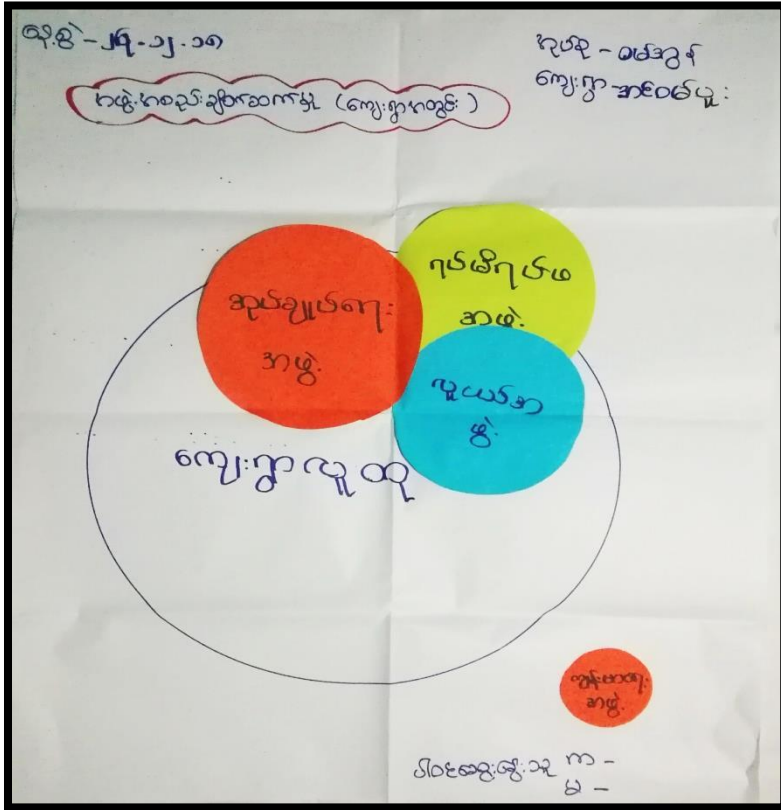 နေ့စွဲ - ၂၅.၁၂.၁၈
အုပ်စု - ဝမ်အွန်
ကျေးရွာ - အင်ဝမ်ယူး
အဖွဲ့အစည်းချိတ်ဆက်မှု (ကျေးရွာအတွင်း)
အုပ်ချုပ်ရေး
အဖွဲ့
ရပ်မိရပ်ဖ
အဖွဲ့
လူငယ်အ
ဖွဲ့
ကျေးရွာလူထု
ကျန်းမာရေး
အဖွဲ့
ပါဝင်ဆွေးနွေးသူ ကာ -
မ -